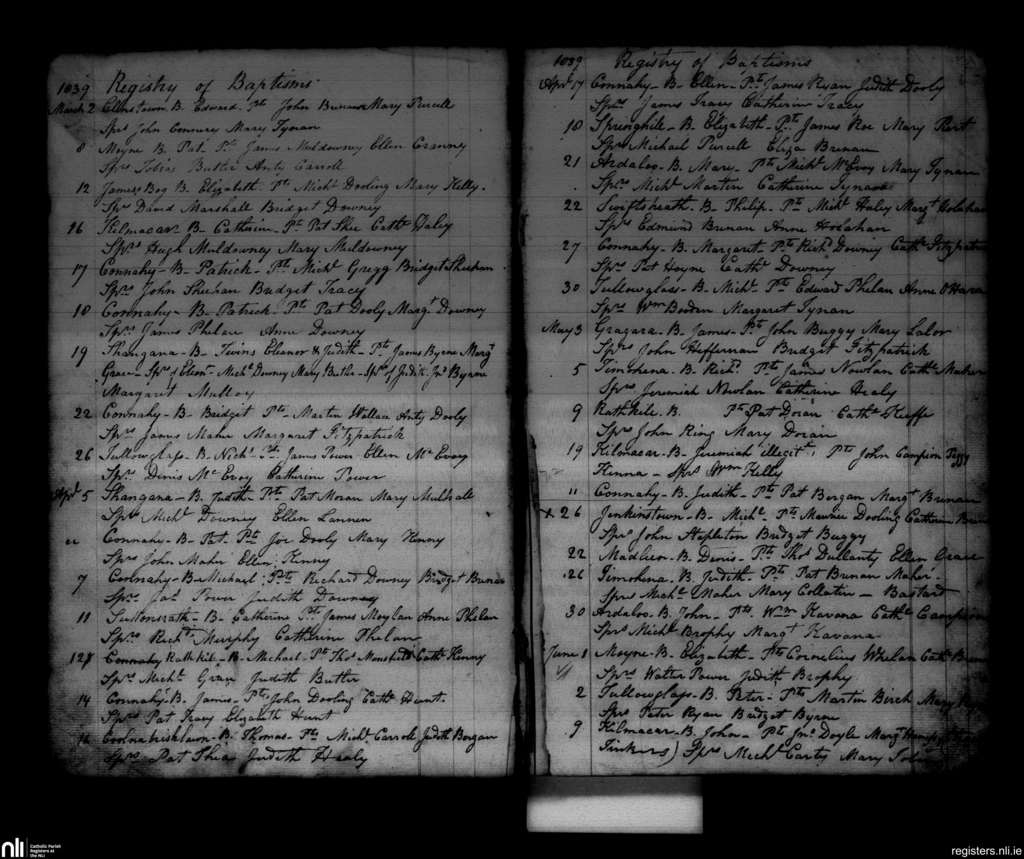 1839 Registry of Baptisms
March 2 B. Edward. Pts John Brenan Mary Purcell
Sprs John Conway Mary Tynan
8 Moyne B. Pat. Pts James Muldowney Ellen Granny
Sprs Tobias Butler Anty Carroll
12 James Bog B. Elizabeth. Pts Michl Dooling Mary Kelly.
Sprs David Marshall Bridget Downey
16 Kilmacar B- Catherin- Pts Pat Shee Cathe Daley
Sprs Hugh Muldowney Mary Muldowney
17 Connahy- B- Patrick- Pts Michl Gregg Bridget Sheehan
Sprs John Sheehan Bridget Tracey
18 Connahy- B- Patrick- Pts Pat Dooly Margt Downey
Sprs James Phelan Anne Downey
19 Shangana- B- Twins Eleanor & Judith- Pts James Byrne Margt
Grace- Sprs of Elenr- Michl Downey Mary Butler- Sprs of Judith Jno Byrne
Margaret Mulloy
22 Connahy- B- Bridgit Pts- Martin Wallace Anty Dooly
Sprs James Maher Margaret Fitzpatrick
26 Tulloglass- B- Nichs Pts. James Power Ellen McEvoy
Sprs Dinis McEvoy Catherine Power
Aprl 5 Shangana- B- Judith- Pts Pat Moran Mary Mulhall
Sprs Michl Downey Ellen Lannen
" Connahy- B- Pat. Pts Joe Dooly Mary Kenny
Sprs John Maher Ellen Kenny
7 Connahy- B- Michael; Pts Richard Downey Bridget Brenan
Sprs Jas Power Judith Downey
11 B- Catherine Pts James Moylan Anne Phelan
Sprs Richd Murphy Catherine Phelan
12 Connahy Rathkil- B- Michael- Pts Thos Cathe Kenny
Sprs Michl Grace Judith Butler
14 Connahy- B. James- Pts John Dooling Cathe Hunt.
Sprs Pat Tracy Elizabeth Hunt
16 B- Thomas- Pts Michl Carroll Judith Bergan
Sprs Pat Shea Judith Healy
1839 Registry of Baptisms
Aprl 17 Connahy- B- Ellen- Pts James Ryan Judith Dooly
Sprs James Tracy Catherin Tracy
18 Springhill- B. Elizabeth- Pts James Roe Mary
Sprs Michael Purcell Eliza Brenan
21 Ardaloo. B- Mary- Pts Michl McEvoy Mary Tynan
Sprs Michl Martin Catherine Tynan
22 Swiftsheath- B- Philip- Pts Michl Haley Margt Holahan
Sprs Edmund Brenan Anne Holahan
27 Connahy- B. Margaret- Pts Richd Downey Cathe Fitzpatrick
Sprs Pat Hoyne Cathe Downey
30 Tulloglass- B- Michl- Pts Edward Phelan Anne OHara
Sprs Wm Margaret Tynan
May 3 Gragara- B- James- Pts John Buggy Mary Lalor
Sprs John Heffernan Bridget Fitzpatrick
5 Timohena- B. Richd. Pts James Nowlan Cathe Maher
Sprs Jeremiah Nowlan Catherine Healy
9 Rathkile. B. Pts Pat Doran Cathe Keeffe
Sprs John King Mary Doran
19 Kilmacar- B- Jeremiah illegitt; Pts John Campion Peggy
Kenna- Sprs Wm Kelly
11 Connahy- B. Judith- Pts Pat Bergan Margt Brenan
x 26 Jenkinstown- B- Michl- Pts Maurice Dooling Catherine
Sprs John Stapleton Bridget Buggy
22 B. Denis- Pts Thos Dullanty Ellen Grace
26 Timohena. B. Judith- Pts Pat Brenan Maher-
Sprs Michl Maher Mary - Bastard
30 Ardaloo. B. John- Pts Wm Kavana Cathe Campion
Sprs Michl Brophy Margt Kavana
June 1 Moyne- B- Elizabeth- Pts Cornelius Whelan Cathe
Sprs Walter Power Judith Brophy
2 Tulloglass- B. Peter- Pts Martin Birch Mary
Sprs Peter Ryan Bridget Byrne
9 Kilmacar- B. John- Pts Jno Doyle Margt
Tinkers) Sprs Michl Carty Mary
nli Catholic Parish Registers at the NLI
registers.nli.ie